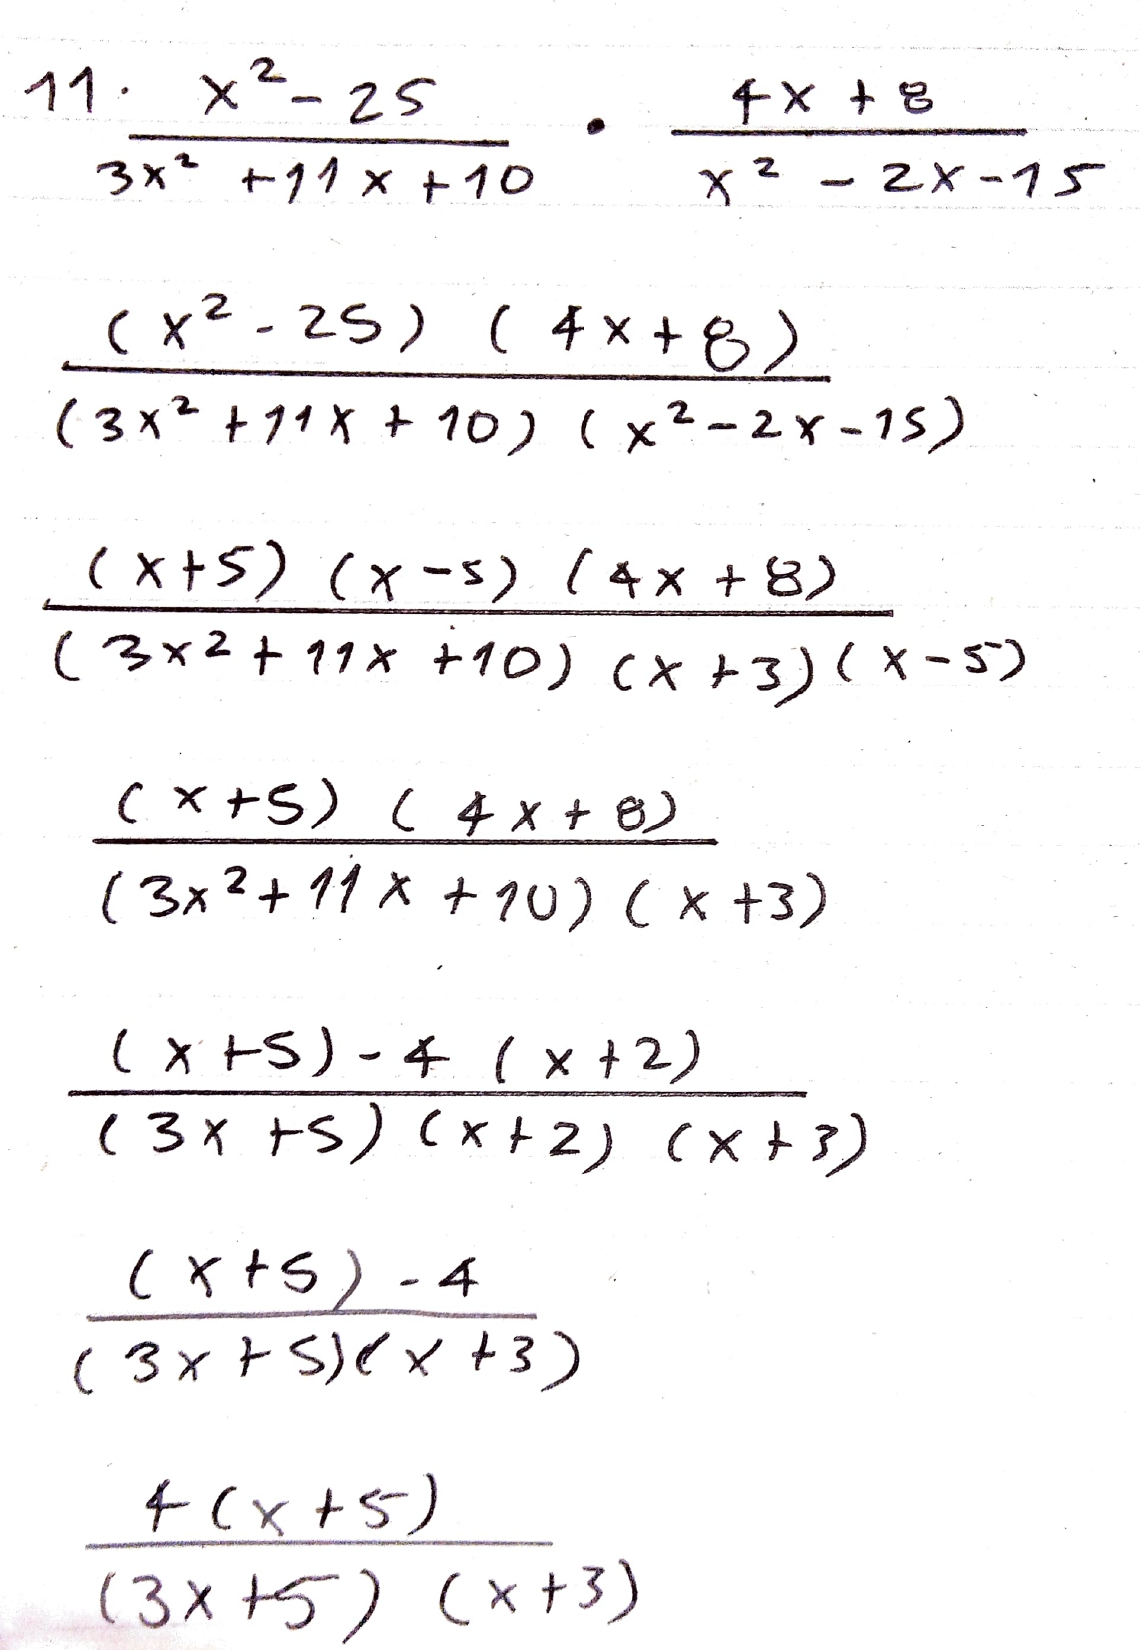 11. x² - 25 / 3x² + 11x + 10 · 4x + 8 / x² - 2x - 15
(x² - 25) (4x + 8)
(3x² + 11x + 10) (x² - 2x - 15)
(x + 5) (x - 5) (4x + 8)
(3x² + 11x + 10) (x + 3) (x - 5)
(x + 5) (4x + 8)
(3x² + 11x + 10) (x + 3)
(x + 5) - 4 (x + 2)
(3x + 5) (x + 2) (x + 3)
(x + 5) - 4
(3x + 5) (x + 3)
4 (x + 5)
(3x + 5) (x + 3)